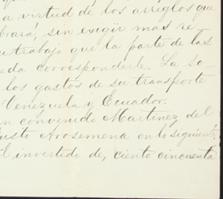 a virtud de los arreglos que
brara, sin exigir mas re
u trabajo que la parte de las
eda corresponderle. La So
los gastos de su transporte
Venezuela y Ecuador.
n convenido Martinez del
usto Arosemena en lo siguiente
l investido de, ciento cincuenta